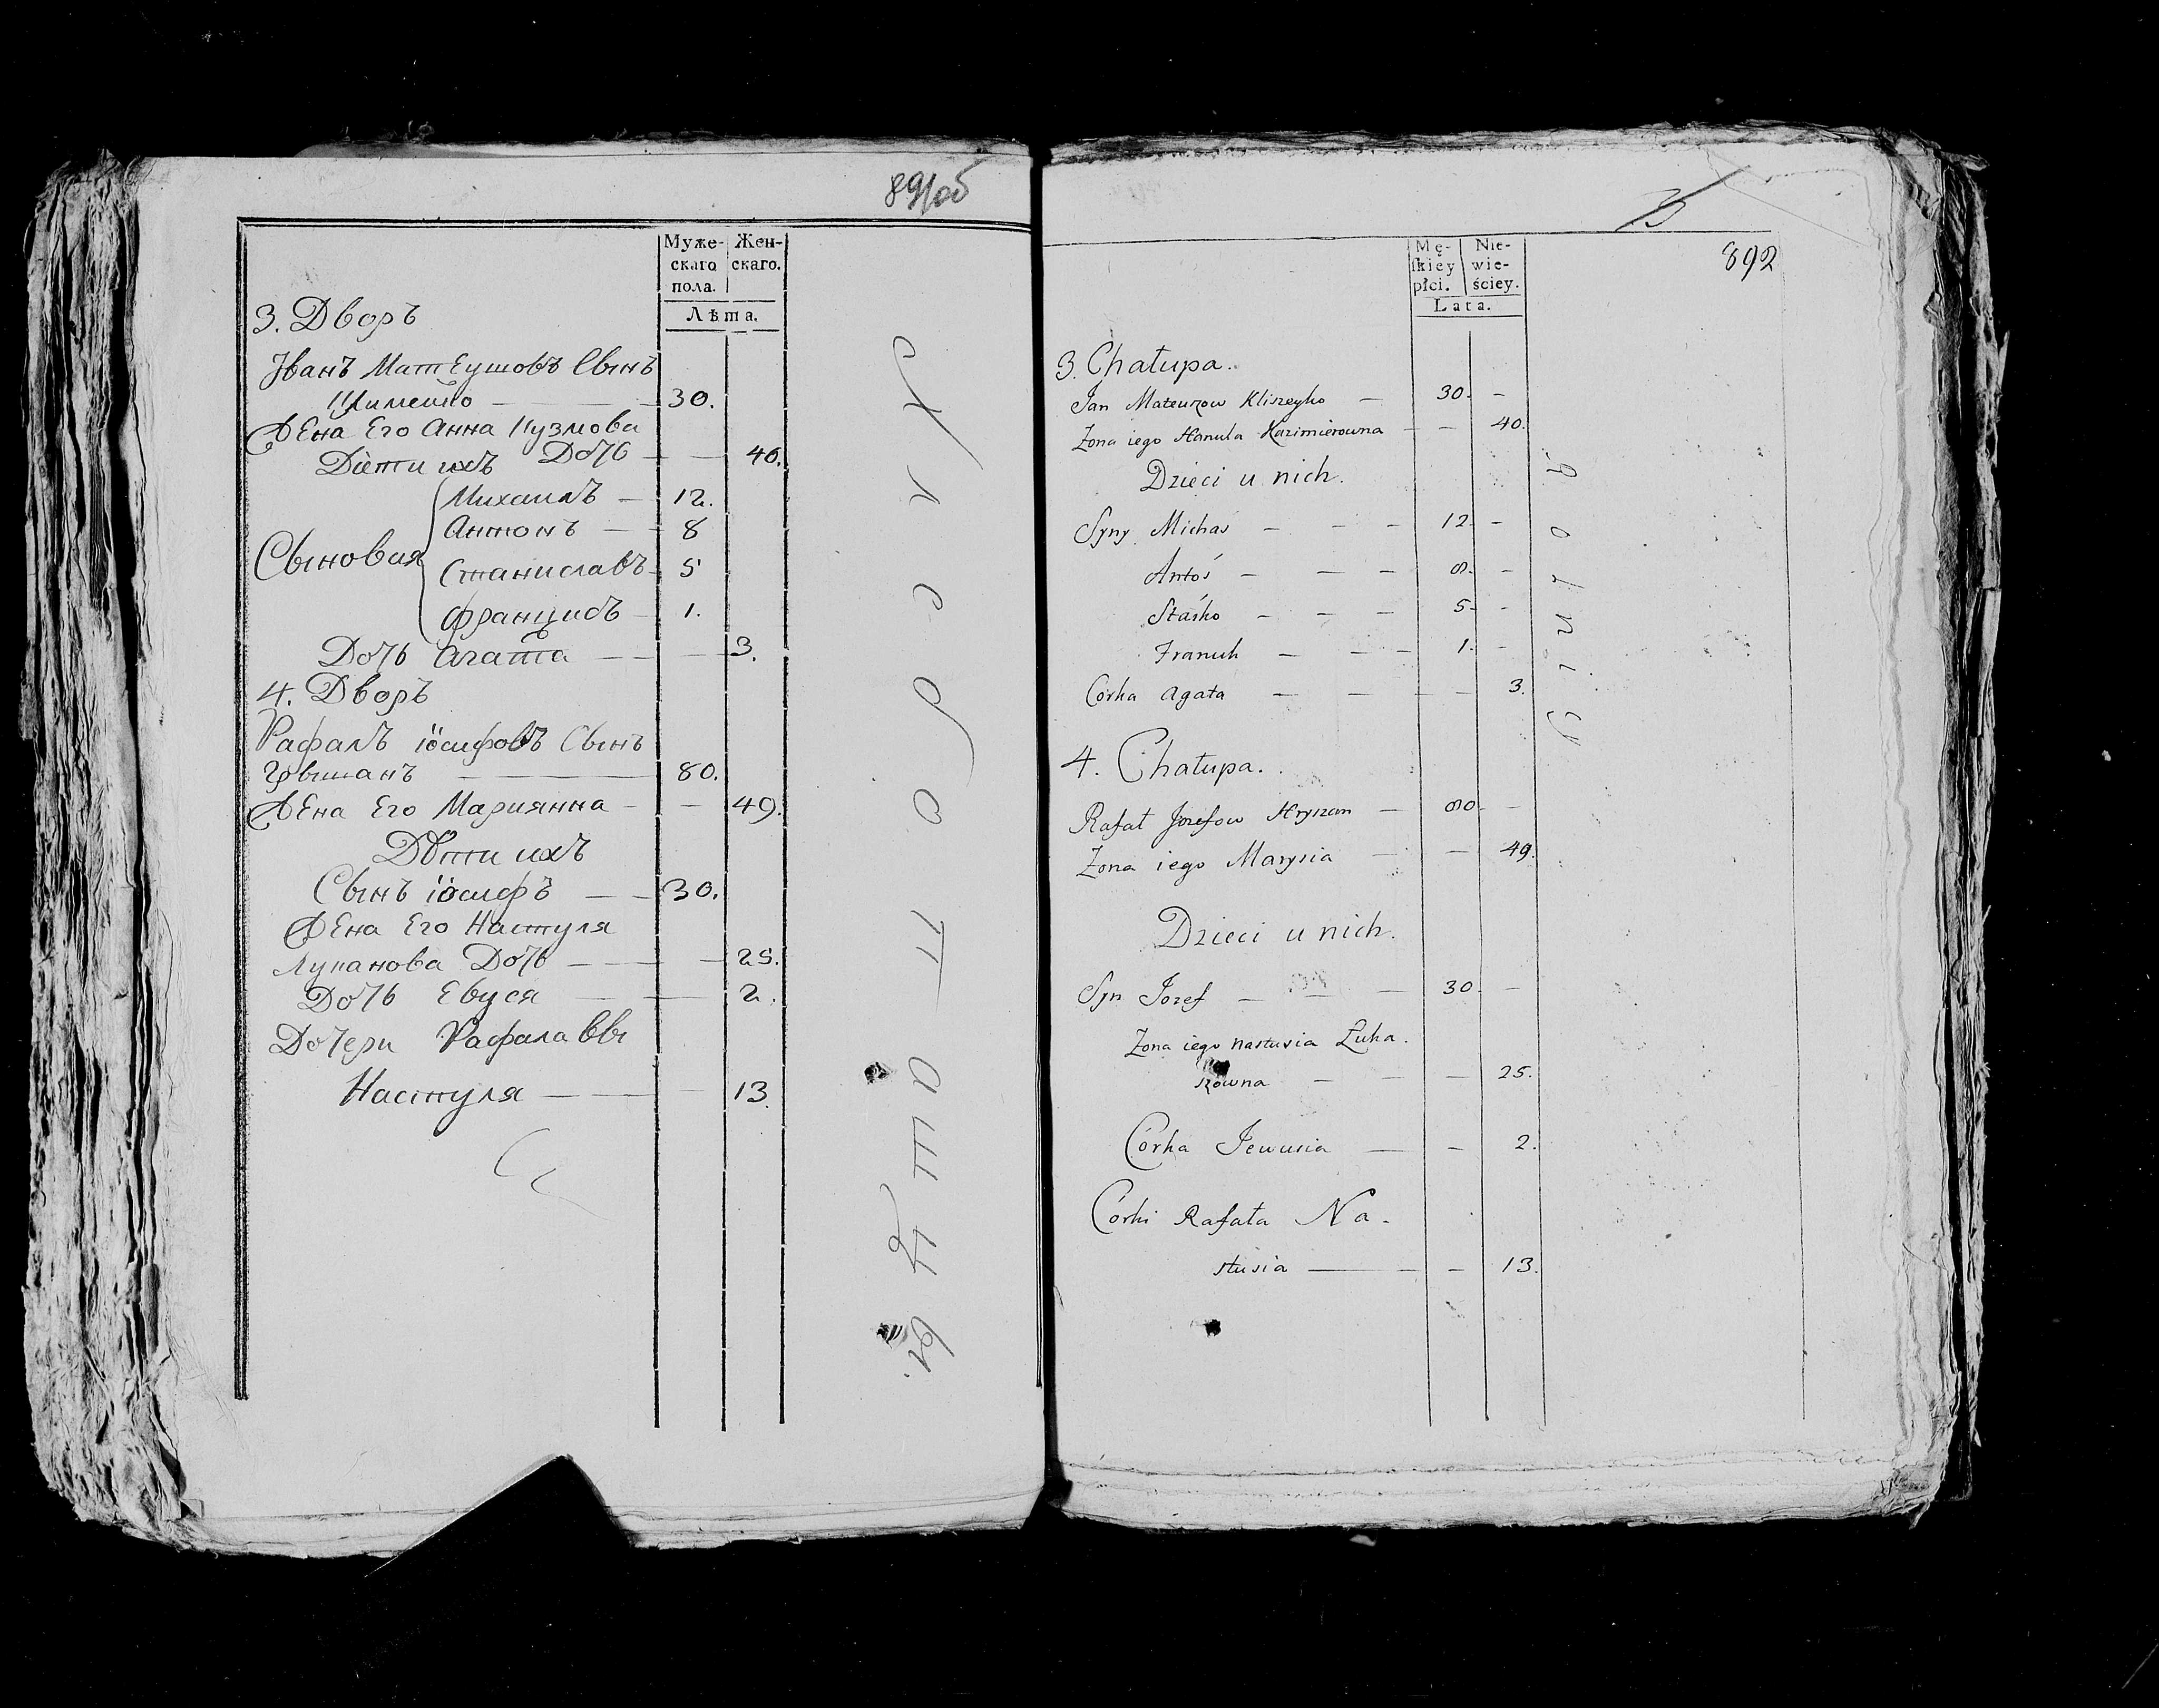 891об
Муже- Жен-
скаго скаго.
пола.
Лѣта.
3. Дворъ
Iванъ Матеушовъ Сынъ
30.
Жена Его Анна Кузмова
Дѣти ихъ Дочь — — 40.
Сыновия
Михаилъ — 12.
Антонъ — 8
Станиславъ 5
Францишъ 1.
Дочь Агата — — 3.
4. Дворъ
Рафалъ iосифовъ Сынъ
Грышанъ — 80.
Жена Его Марияна — — 49.
Дѣти ихъ
Сынъ iосифъ — 30.
Жена Его Настуля
Луканова Дочь — — 25.
Дочь Евуся — — 2.
Дочери Рафала
Настуля — — 13.
892
Mę- Nie-
ſkiey wie-
płci. ściey.
Lata.
3. Chałupa.
Jan Mateuszow Kliszeyko — 30. -
Żona iego Hanula Kazimierowna — — 40.
Dzieci u nich.
Syny Michaś — — — 12. -
Antoś — — — 8. -
Staśko — — — 5. -
Franuk — — — 1. -
Córka Agata — — — — 3.
4. Chałupa.
Rafał Jozefow Hryszan — 80. -
Żona iego Marysia — — 49.
Dzieci u nich.
Syn Jozef — — — 30. -
Żona iego Nastusia Łuka-
szowna — — — 25.
Córka Jewusia — — 2.
Córki Rafała Na-
stusia — — 13.